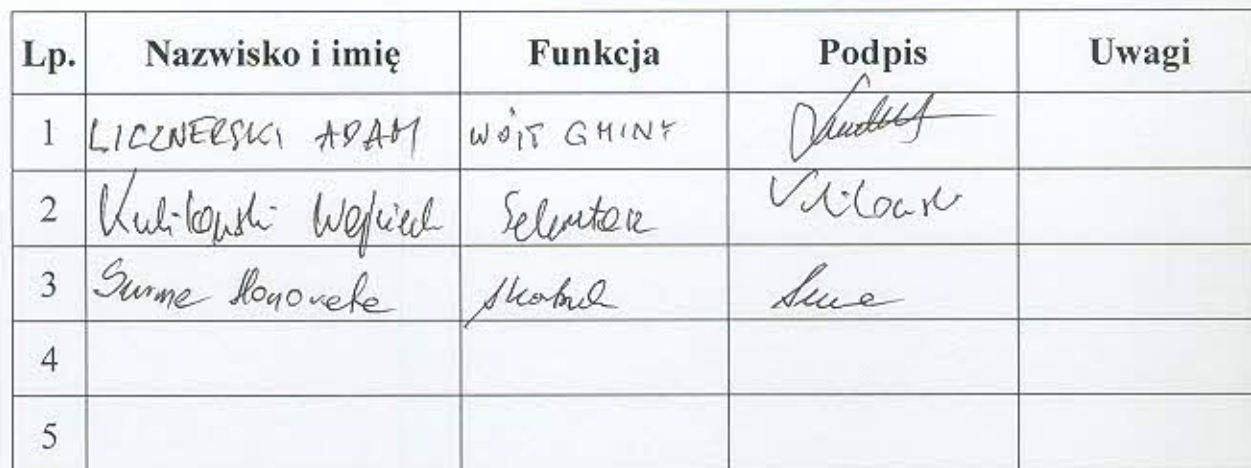 Lp. Nazwisko i imię Funkcja Podpis Uwagi
1 LICZNERSKI ADAM WÓJT GMINY
2 Kulikowski Wojciech Sekretarz Kulikowski
3 Surma Honorata Skarbnik Surma
4
5